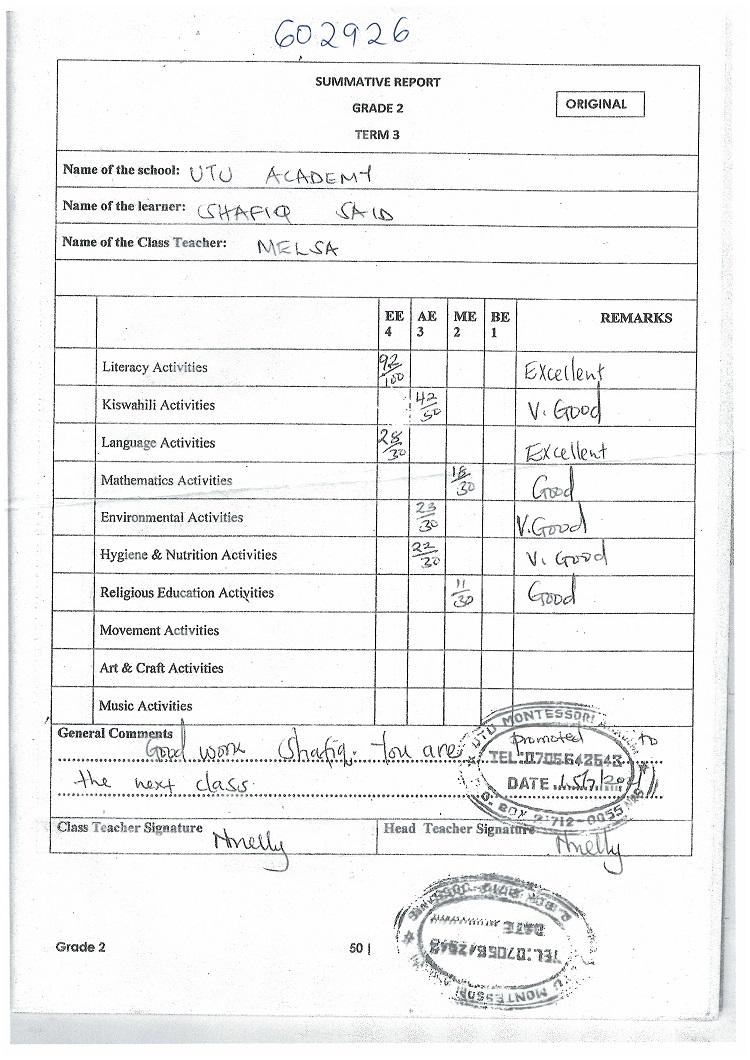 602926
SUMMATIVE REPORT
GRADE 2
ORIGINAL
TERM 3
Name of the school: UTU ACADEMY
Name of the learner: SHAFIQ SAID
Name of the Class Teacher: MELSA
EE 4 AE 3 ME 2 BE 1 REMARKS
Literacy Activities 92/100 Excellent
Kiswahili Activities 42/50 V. Good
Language Activities 28/30 Excellent
Mathematics Activities 18/30 Good
Environmental Activities 23/30 V. Good
Hygiene & Nutrition Activities 22/30 V. Good
Religious Education Activities 11/30 Good
Movement Activities
Art & Craft Activities
Music Activities
General Comments
Good work Shafiq. You are promoted to
the next class.
UTU MONTESSORI
TEL:0705642543
DATE 15/7/
Class Teacher Signature Nnelly
Head Teacher Signature Nnelly
DATE
TEL:0705642543
MONTESSORI
Grade 2 50 |